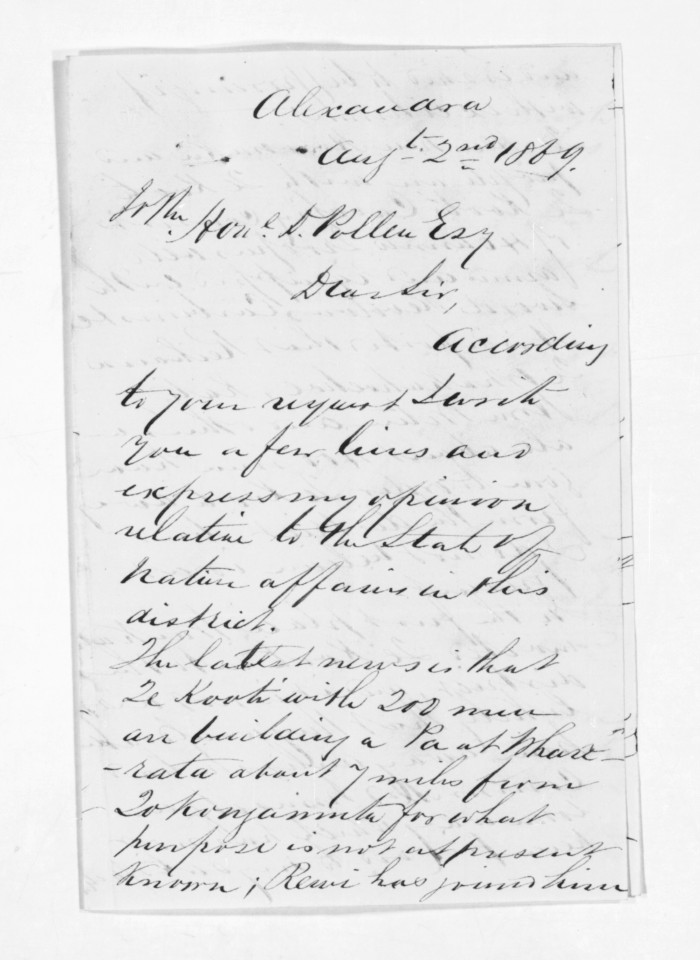 Alexandra
Augt. 2nd 1869.
To the Honl. D. Pollen Esq
Dear Sir,
According
to your request I write
you a few lines and
express my opinion
relative to the State of
native affairs in this
district.
The latest news is that
Te Kooti with 200 men
are building a Pa at Whare-
-rata about 7 miles from
for what
purpose is not at present
known; Rewi has joined him